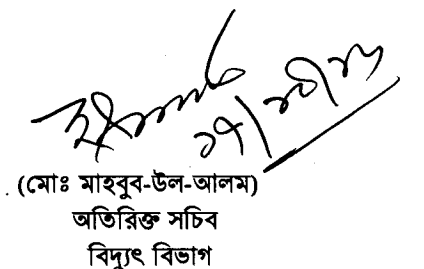 (মোঃ মাহবুব-উল-আলম)
অতিরিক্ত সচিব
বিদ্যুৎ বিভাগ